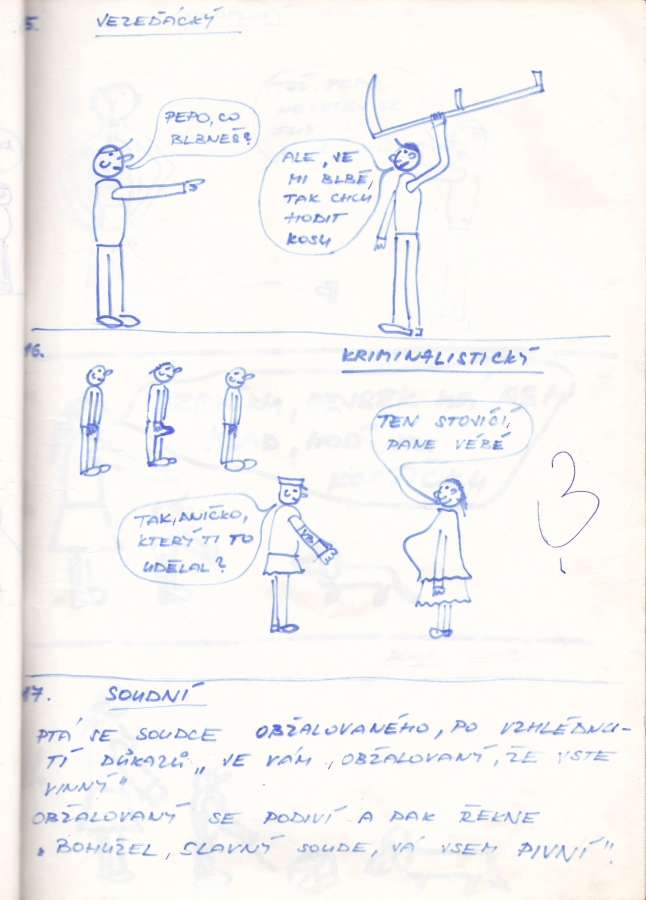 5. VEZEĎÁCKÝ
PEPO, CO
BLBNEŠ?
ALE, VE
MI BLBĚ,
TAK CHCU
HODIT
KOSU
16. KRIMINALISTICKÝ
TEN STOVIČÍ,
PANE VÉBÉ
TAK, ANIČKO,
KTERÝ TI TO
UDĚLAL?
VB
17. SOUDNÍ
PTÁ SE SOUDCE OBŽALOVANÉHO, PO VZHLÉDNU-
TÍ DŮKAZŮ „VE VÁM, OBŽALOVANÝ, ŽE VSTE
VINNÝ"
OBŽALOVANÝ SE PODIVÍ A PAK ŘEKNE
„BOHUŽEL, SLAVNÝ SOUDE, VÁ VSEM PIVNÍ".